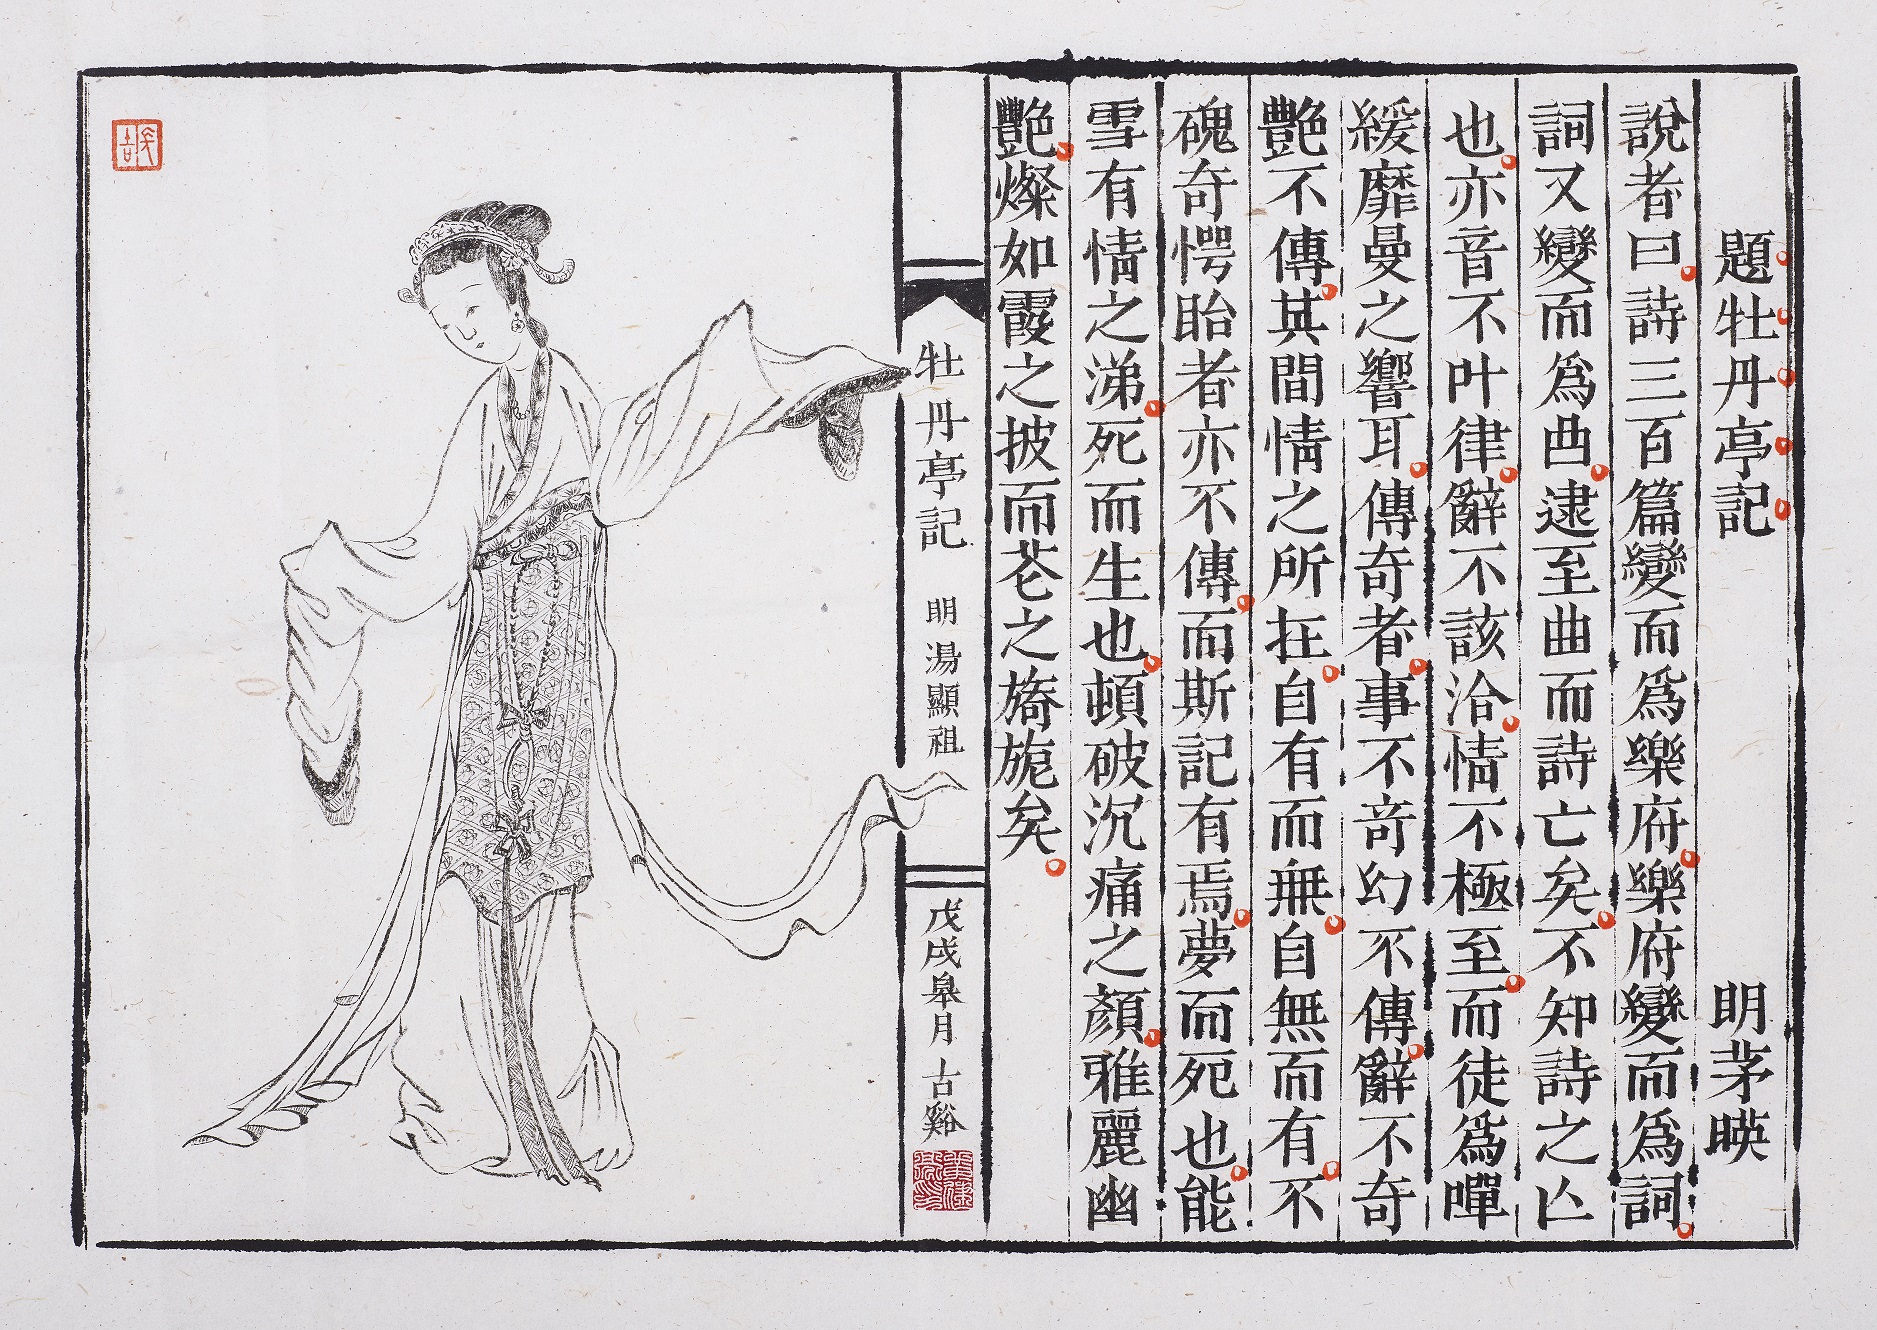 題牡丹亭記 明茅暎
說者曰詩三百篇變而爲樂府樂府變而爲詞
詞又變而爲曲逮至曲而詩亡矣不知詩之亡
也亦音不叶律辭不該洽情不極至而徒爲嘽
緩靡曼之響耳傳奇者事不奇幻不傳辭不奇
艷不傳其間情之所在自有而無自無而有不
磈奇愕眙者亦不傳而斯記有焉夢而死也能
雪有情之涕死而生也頓破沉痛之顏雅麗幽
艷燦如霞之披而花之旖旎矣
牡丹亭記 明湯顯祖
戊戌皋月 古谿